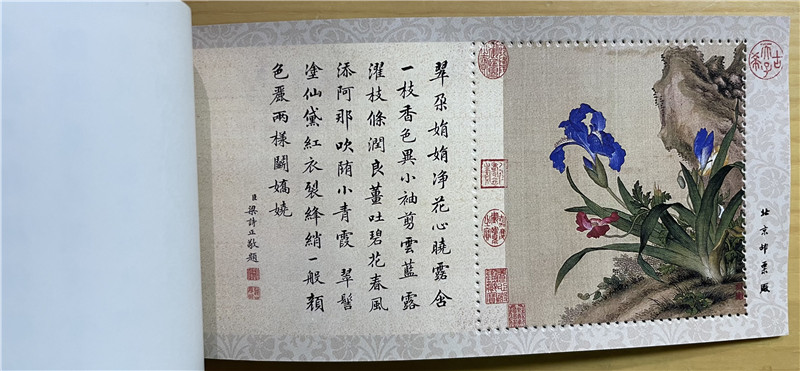 翠朶娟娟净花心曉露含
一枝香色異小袖剪雲藍 露
濯枝條潤良薑吐碧花春風
添阿那吹陏小青霞 翠髻
塗仙黛紅衣裂絳綃一般顏
色麗兩樣鬭嬌嬈
臣梁詩正敬題
古希天子
北京邮票厰